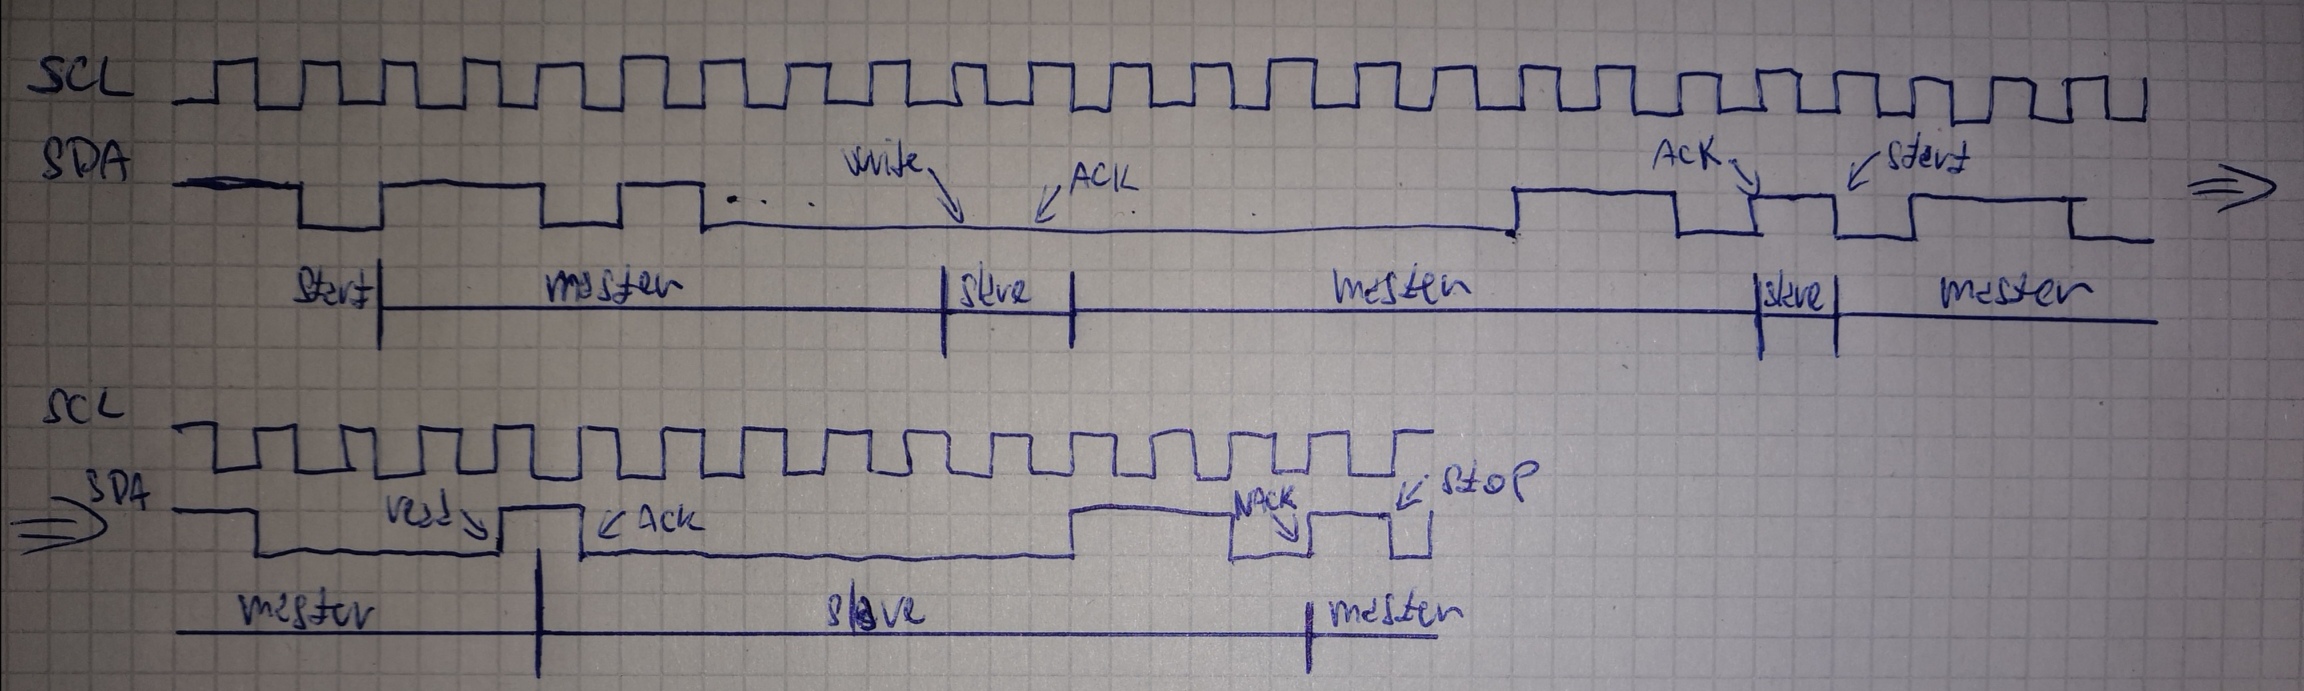 SCL
SDA
write
ACK
ACK
start
start
master
slave
master
slave
master
SCL
SDA
read
ACK
NACK
STOP
master
slave
master